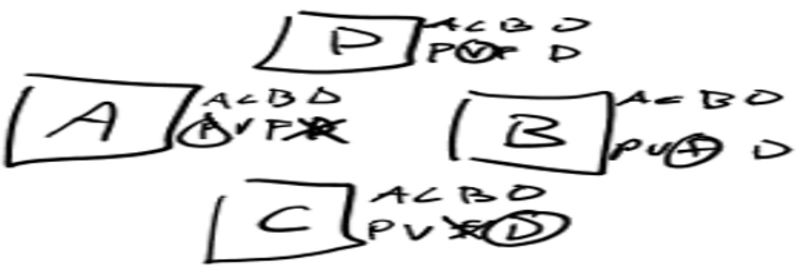 D ACBD
PVF D
A ACBD
PVF
B ACBD
PVF D
C ACBD
PV D